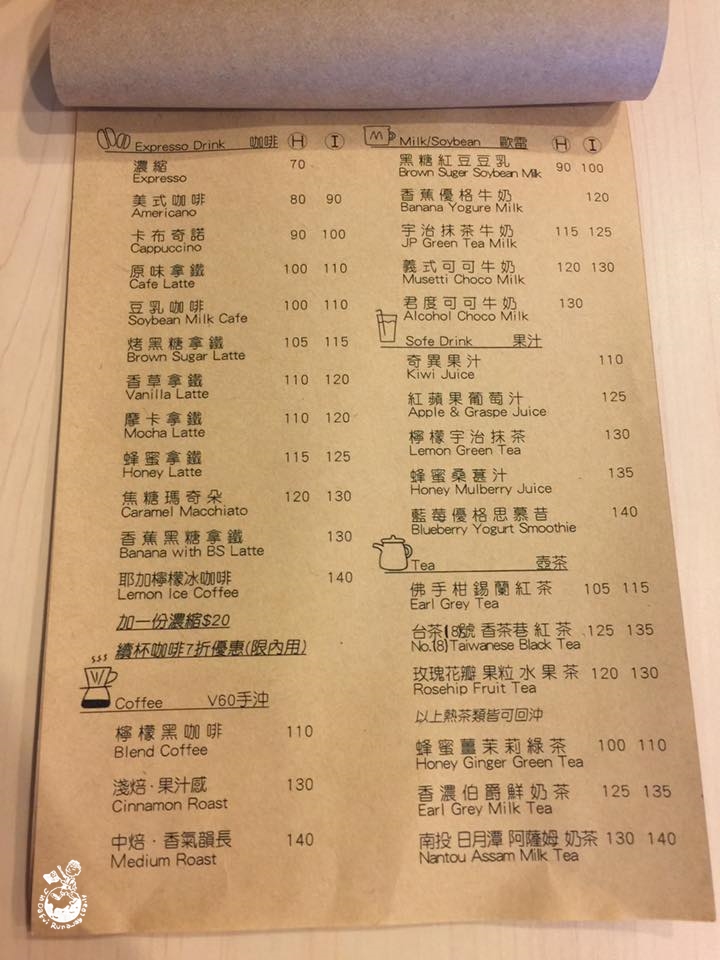 Expresso Drink 咖啡 H I
濃縮 70
Expresso
美式咖啡 80 90
Americano
卡布奇諾 90 100
Cappuccino
原味拿鐵 100 110
Cafe Latte
豆乳咖啡 100 110
Soybean Milk Cafe
烤黑糖拿鐵 105 115
Brown Sugar Latte
香草拿鐵 110 120
Vanilla Latte
摩卡拿鐵 110 120
Mocha Latte
蜂蜜拿鐵 115 125
Honey Latte
焦糖瑪奇朵 120 130
Caramel Macchiato
香蕉黑糖拿鐵 130
Banana with BS Latte
耶加檸檬冰咖啡 140
Lemon Ice Coffee
加一份濃縮$20
續杯咖啡7折優惠(限內用)
Coffee V60手沖
檸檬黑咖啡 110
Blend Coffee
淺焙·果汁感 130
Cinnamon Roast
中焙·香氣韻長 140
Medium Roast
Milk/Soybean 歐雷 H I
黑糖紅豆豆乳 90 100
Brown Suger Soybean Milk
香蕉優格牛奶 120
Banana Yogure Milk
宇治抹茶牛奶 115 125
JP Green Tea Milk
義式可可牛奶 120 130
Musetti Choco Milk
君度可可牛奶 130
Alcohol Choco Milk
Sofe Drink 果汁
奇異果汁 110
Kiwi Juice
紅蘋果葡萄汁 125
Apple & Graspe Juice
檸檬宇治抹茶 130
Lemon Green Tea
蜂蜜桑葚汁 135
Honey Mulberry Juice
藍莓優格思慕昔 140
Blueberry Yogurt Smoothie
Tea 壺茶
佛手柑錫蘭紅茶 105 115
Earl Grey Tea
台茶(18號 香茶巷紅茶 125 135
No.(8)Taiwanese Black Tea
玫瑰花瓣果粒水果茶 120 130
Rosehip Fruit Tea
以上熱茶類皆可回沖
蜂蜜薑茉莉綠茶 100 110
Honey Ginger Green Tea
香濃伯爵鮮奶茶 125 135
Earl Grey Milk Tea
南投 日月潭 阿薩姆 奶茶 130 140
Nantou Assam Milk Tea